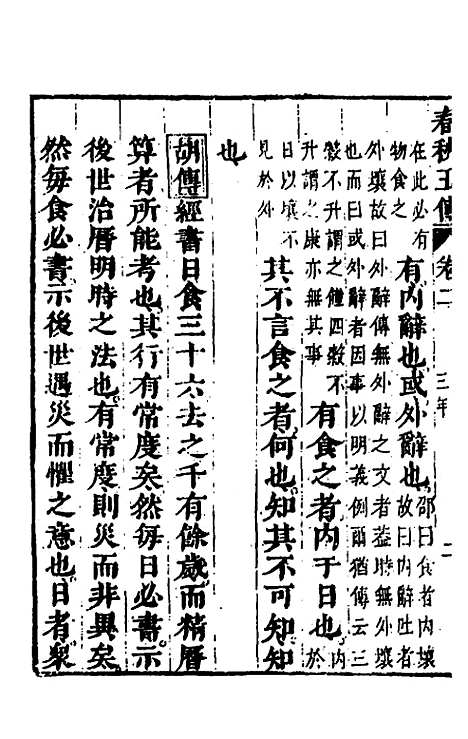 春秋五傳 卷二 三年 一
在此必有物食之有內辭也或外辭也邵曰食者內壤故曰內辭吐者
外壤故曰外辭傳無外辭之文者蓋時無外壤也而曰或外辭者因事以明義例爾猶傳云三
穀不升謂之饉四穀不升謂之康亦無其事有食之者內于日也內於
日以壤不見於外其不言食之者何也知其不可知知
也
胡傳經書日食三十六去之千有餘歲而精曆
算者所能考也其行有常度矣然每日必書示
後世治曆明時之法也有常度則災而非異矣
然每食必書示後世遇災而懼之意也日者衆